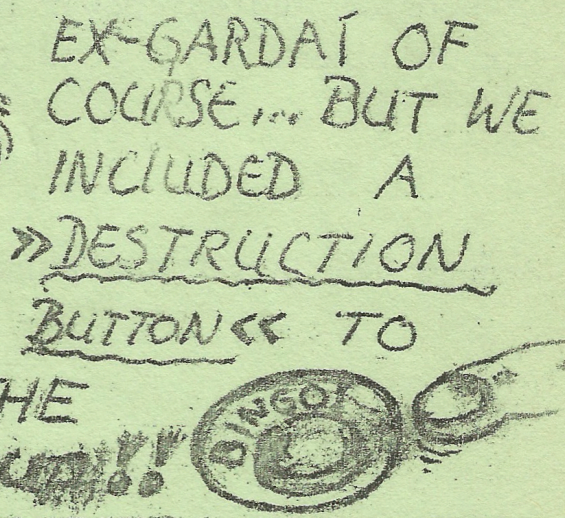 EX-GARDAÍ OF
COURSE... BUT WE
INCLUDED A
»DESTRUCTION
BUTTON« TO
HE
!!
BINGO!